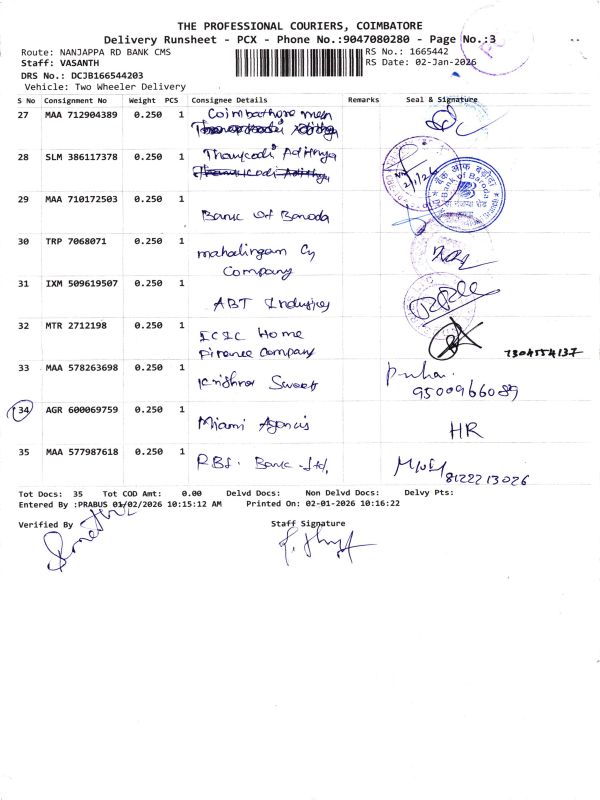 THE PROFESSIONAL COURIERS, COIMBATORE
Delivery Runsheet - PCX - Phone No.:9047080280 - Page No.:3
Route: NANJAPPA RD BANK CMS
RS No.: 1665442
Staff: VASANTH
RS Date: 02-Jan-2026
DRS No.: DCJB166544203
Vehicle: Two Wheeler Delivery
S No Consignment No Weight PCS Consignee Details Remarks Seal & Signature
27 MAA 712904389 0.250 1 Coimbathore men
28 SLM 386117378 0.250 1 Thanycodi Adithya
2/1/26
बैंक ऑफ़ बड़ौदा
Bank of Baroda
29 MAA 710172503 0.250 1
Bank Of Baroda
30 TRP 7068071 0.250 1 mahalingam Cy
Company
31 IXM 509619507 0.250 1
ABT Industries
32 MTR 2712198 0.250 1 ICIC Home
Finance Company
7304554137
33 MAA 578263698 0.250 1
Krishna Sweet
9500966089
34 AGR 600069759 0.250 1
Miami Agencis
HR
35 MAA 577987618 0.250 1
RBL. Bank Ltd,
8122213026
Tot Docs: 35 Tot COD Amt: 0.00 Delvd Docs: Non Delvd Docs: Delvy Pts:
Entered By :PRABUS 01/02/2026 10:15:12 AM Printed On: 02-01-2026 10:16:22
Verified By
Staff Signature